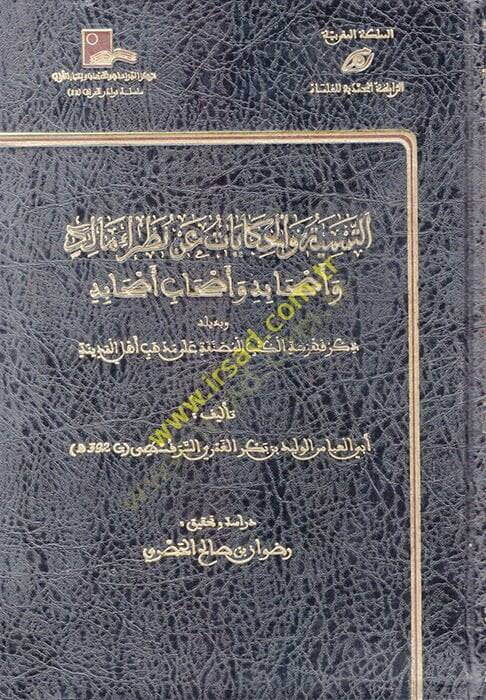 المملكة المغربية
الرابطة المحمدية للعلماء
سلسلة نوادر التراث (23)
التسمية والحكايات عن نظراء مالك
وأصحابه وأصحاب أصحابه
وبذيله
ذكر فهرسة الكتب المصنفة على مذهب أهل المدينة
تأليف:
أبي العباس الوليد بن بكر الغمري السرقسطي (ت 392 هـ)
دراسة وتحقيق:
رضوان بن صالح الحصري
www.irsad.com.tr